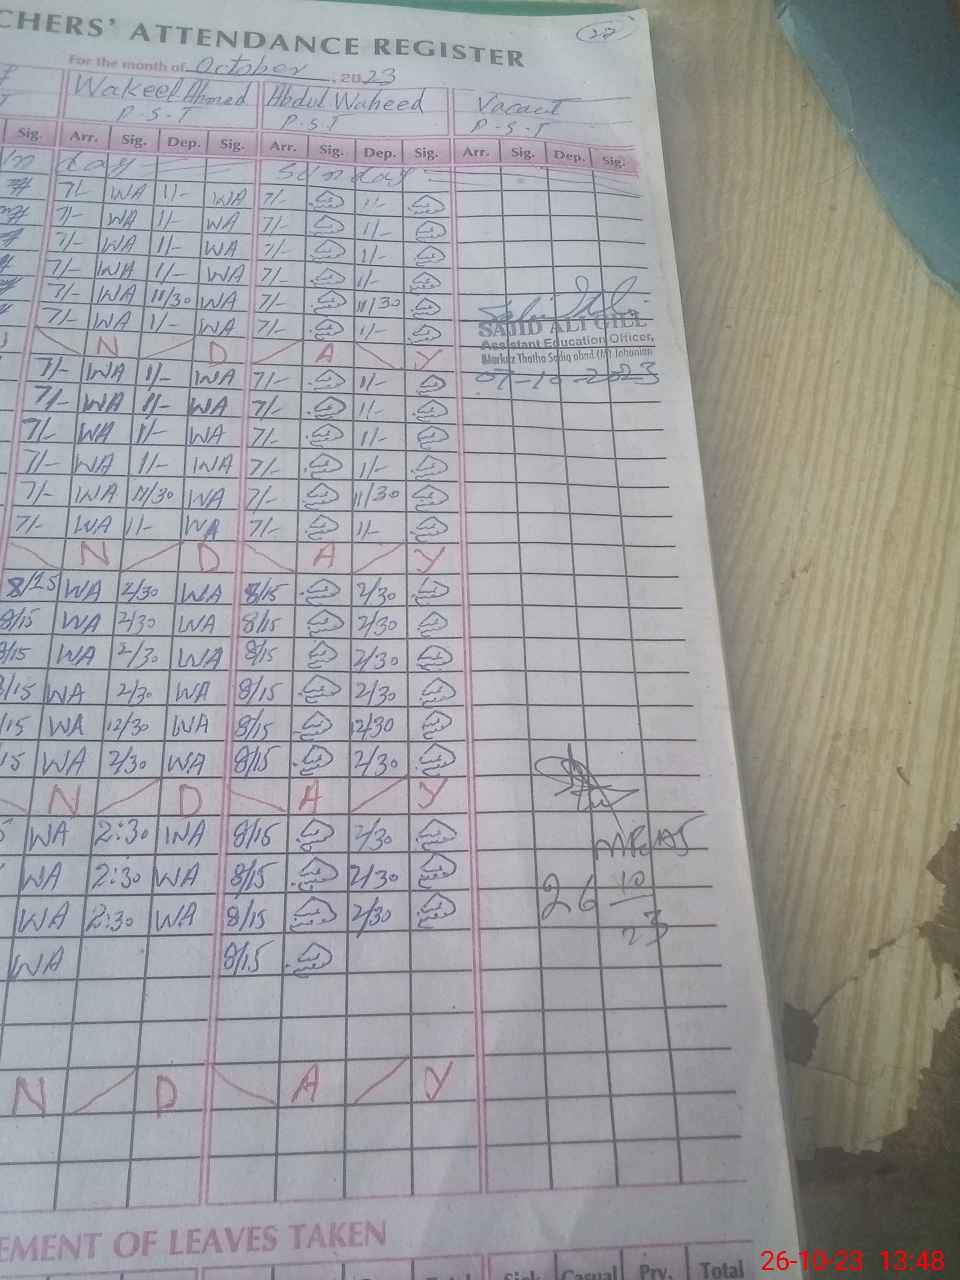 CHERS' ATTENDANCE REGISTER
27
For the month of October, 2023
Wakeel Ahmed Abdul Waheed Vacant
P-S-T P.S.T P-S-T
Sig. Arr. Sig. Dep. Sig. Arr. Sig. Dep. Sig. Arr. Sig. Dep. Sig.
day Sunday
7/- WA 1/- WA 7/- 1/-
7/- WA 1/- WA 7/- 1/-
7/- WA 1/- WA 7/- 1/-
7/- WA 1/- WA 7/- 1/-
7/- WA 11/30 WA 7/- 11/30
7/- WA 1/- WA 7/- 1/-
SAJID ALI GILL
Assistant Education Officer,
Markaz Thatha Sadiq abad (M) Jahanian
07-10-2023
N D A Y
7/- WA 1/- WA 7/- 1/-
7/- WA 1/- WA 7/- 1/-
7/- WA 1/- WA 7/- 1/-
7/- WA 1/- WA 7/- 1/-
7/- WA 11/30 WA 7/- 11/30
7/- WA 1/- WA 7/- 1/-
N D A Y
8/15 WA 2/30 WA 8/15 2/30
8/15 WA 2/30 WA 8/15 2/30
8/15 WA 2/30 WA 8/15 2/30
8/15 WA 2/30 WA 8/15 2/30
/15 WA 12/30 WA 8/15 12/30
15 WA 2/30 WA 8/15 2/30
N D A Y
WA 2:30 WA 8/15 2/30
WA 2:30 WA 8/15 2/30
WA 2:30 WA 8/15 2/30
26 10 23
WA 8/15
N D A Y
EMENT OF LEAVES TAKEN
Sick Casual Prv. Total
26-10-23 13:48